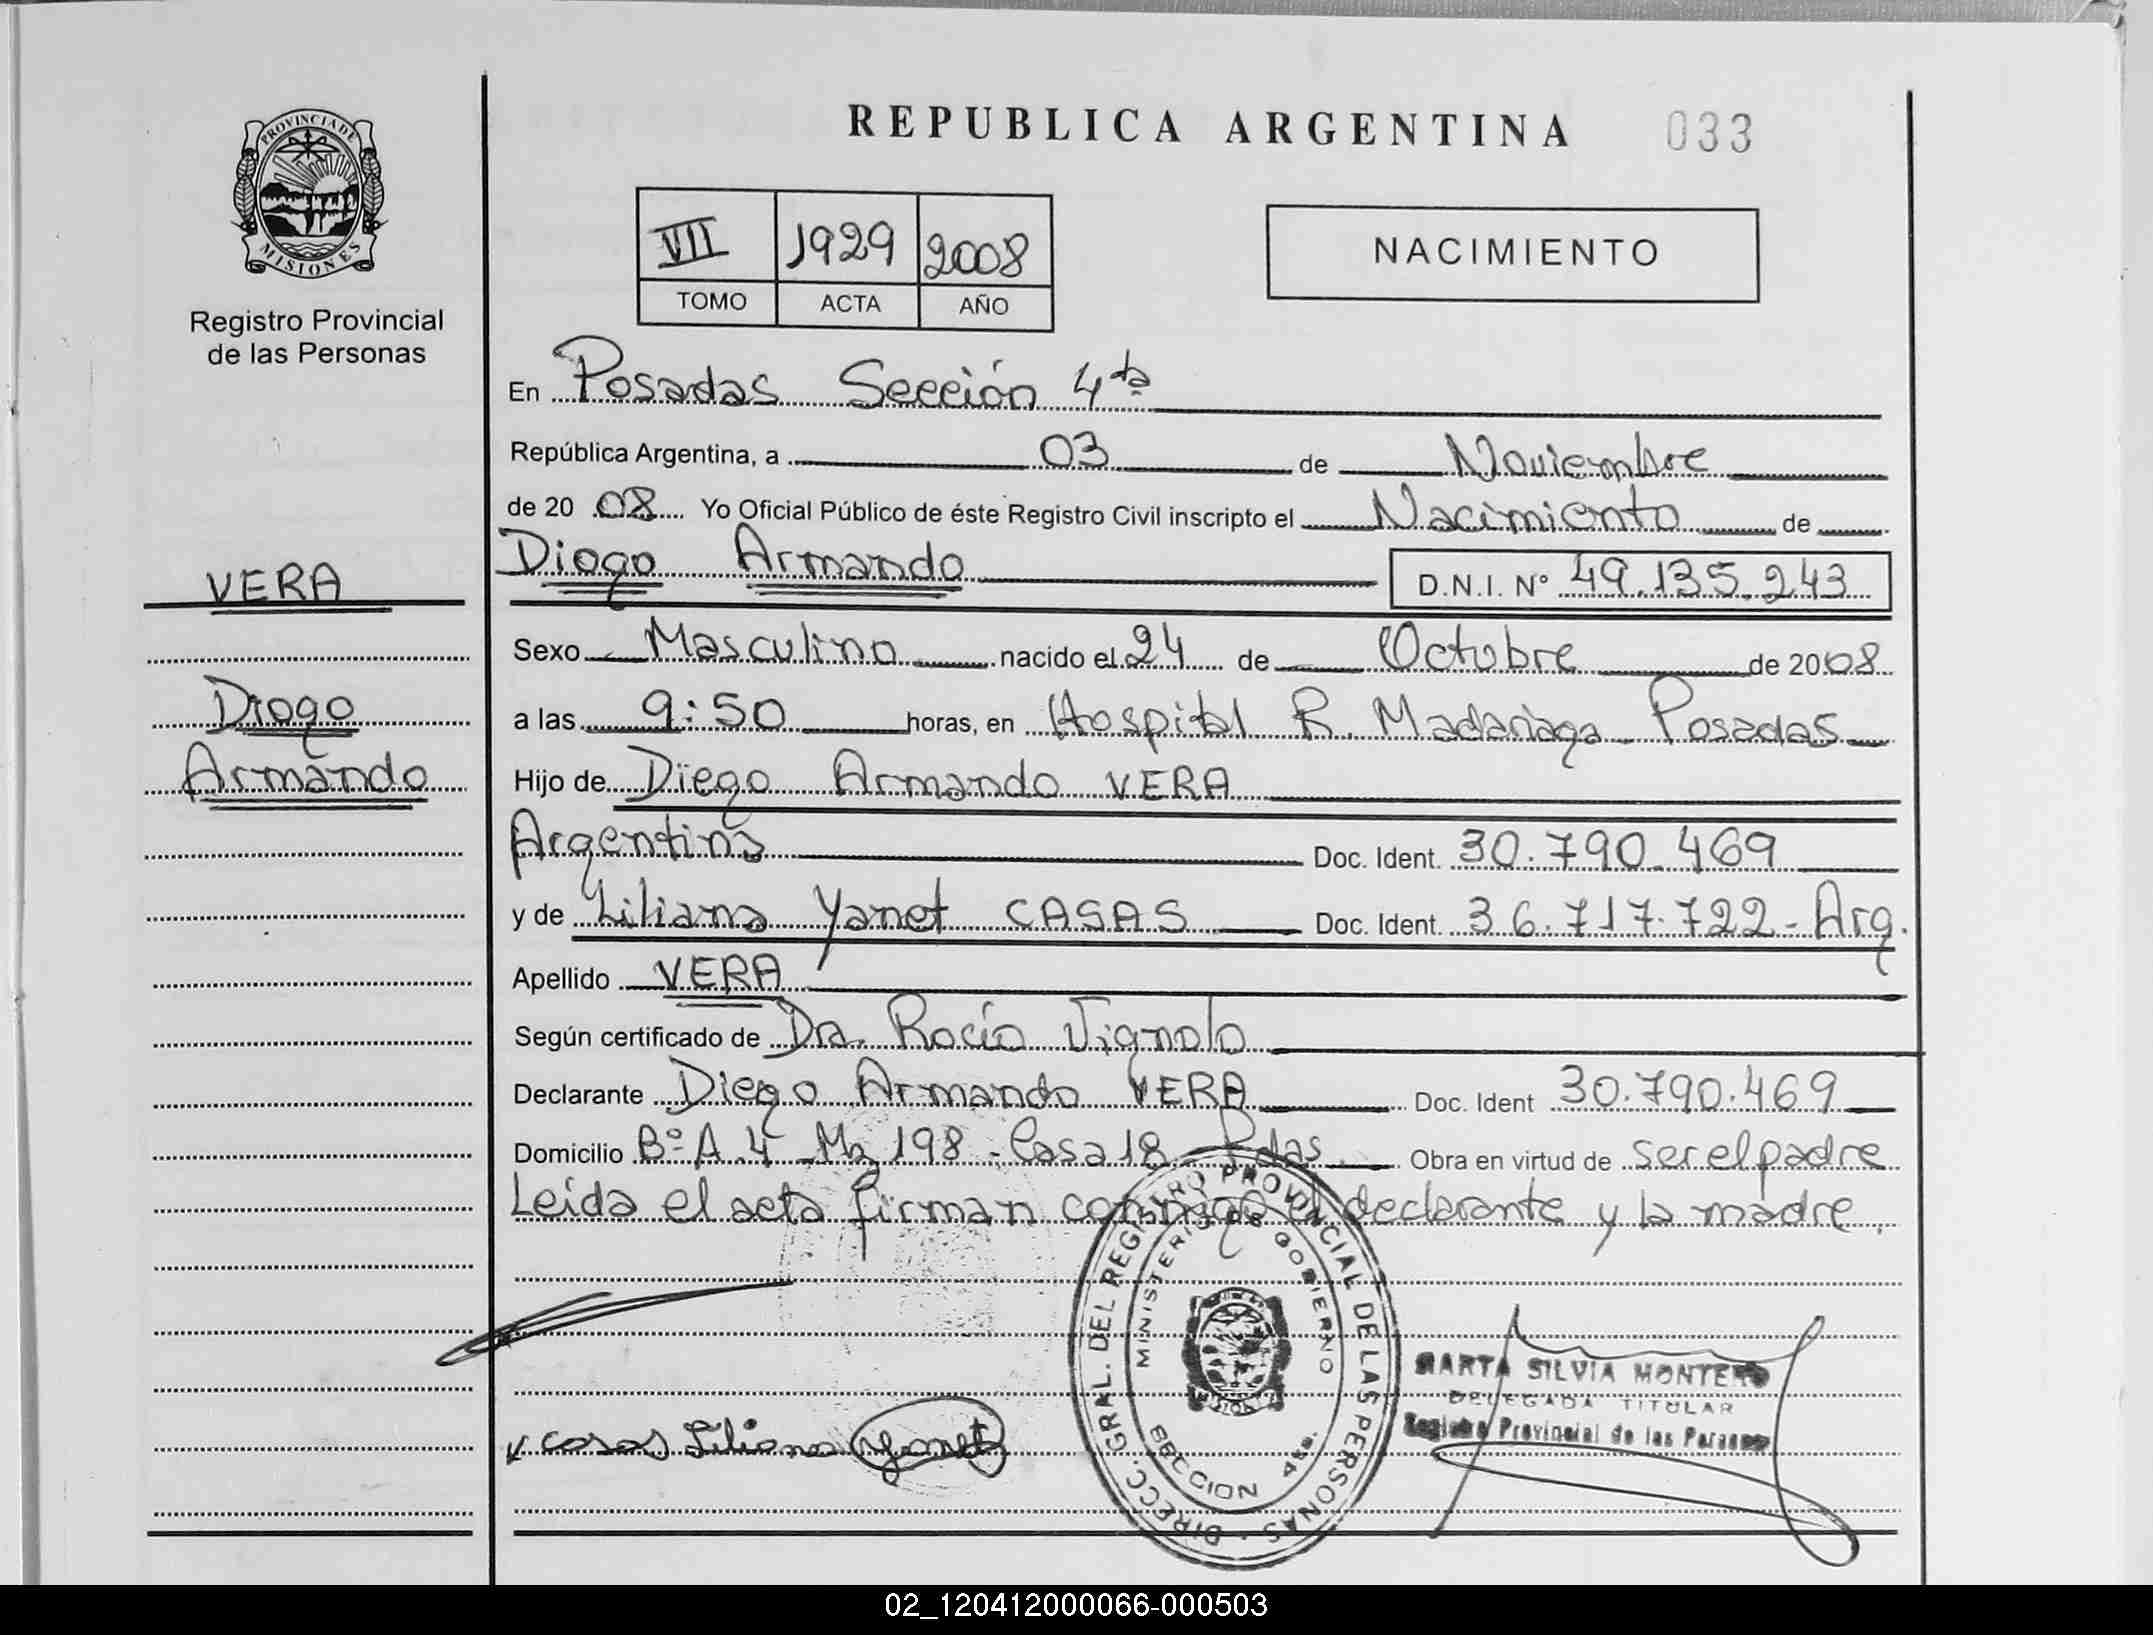 REPUBLICA ARGENTINA 033
PROVINCIA DE
MISIONES
Registro Provincial
de las Personas
VII 1929 2008
TOMO ACTA AÑO
NACIMIENTO
En Posadas Sección 4ta
República Argentina, a 03 de Noviembre
de 2008 Yo Oficial Público de éste Registro Civil inscripto el Nacimiento de
Diogo Armando D.N.I. N° 49.135.243
VERA
Diogo
Armando
Sexo Masculino nacido el 24 de Octubre de 2008
a las 9:50 horas, en Hospital R. Madariaga Posadas
Hijo de Diego Armando VERA
Argentina Doc. Ident. 30.790.469
y de Liliana Yanet CASAS Doc. Ident. 36.717.722 - Arg.
Apellido VERA
Según certificado de Dra. Rocío Vignolo
Declarante Diego Armando VERA Doc. Ident 30.790.469
Domicilio Bº A 4 Mz 198 - Casa 18 - Pdas Obra en virtud de ser el padre
Leida el acta firman conmigo el declarante y la madre.
DIRECC. GRAL. DEL REGISTRO PROVINCIAL DE LAS PERSONAS
MINISTERIO DE GOBIERNO
SECCION 4ta.
MARTA SILVIA MONTERO
DELEGADA TITULAR
Registro Provincial de las Personas
casas Liliana Yanet
02_120412000066-000503